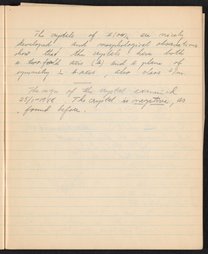 The crystals of are nicely
developed and morphological observations
show that the crystals have both
a two fold axis (b) and a plane of
symmetry ⊥ b-axis, also class 2/m.
The sign of the crystal examined
25/1-1946 The crystal is negative, as
found before.